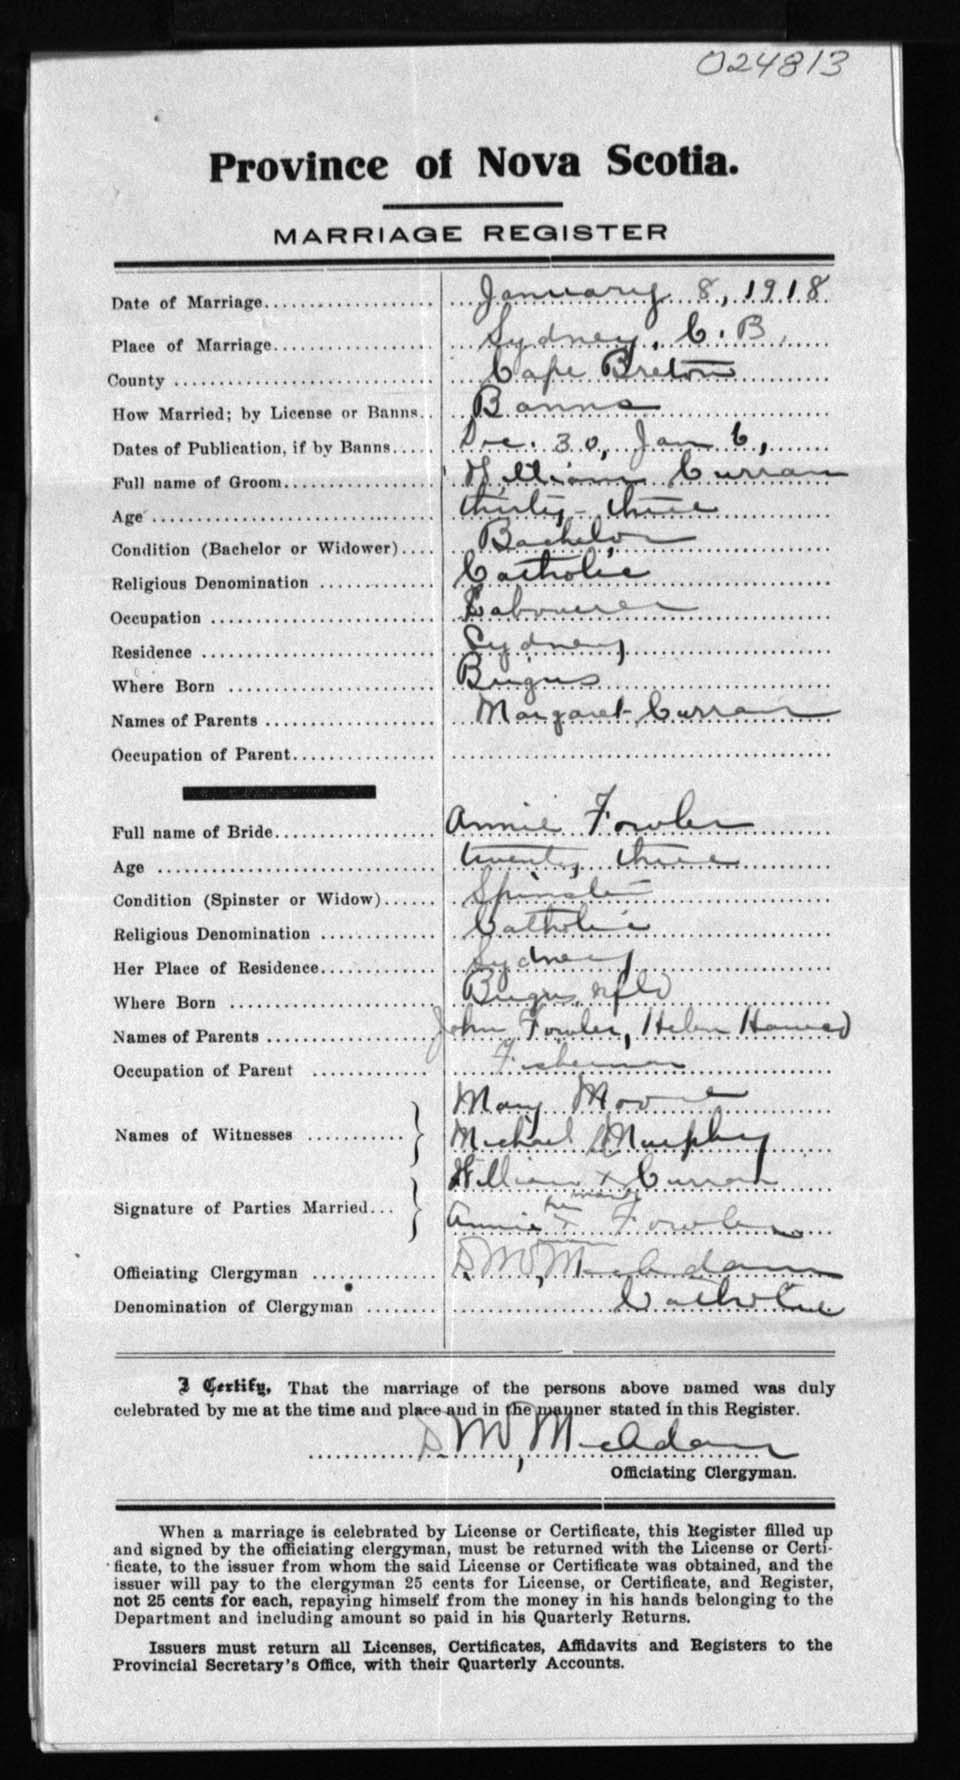 024813
Province of Nova Scotia.
MARRIAGE REGISTER
Date of Marriage January 8, 1918
Place of Marriage Sydney, C. B.
County Cape Breton
How Married; by License or Banns Banns
Dates of Publication, if by Banns Dec. 30, Jan 6,
Full name of Groom William Curran
Age thirty-three
Condition (Bachelor or Widower) Bachelor
Religious Denomination Catholic
Occupation Labourer
Residence Sydney
Where Born Brigus
Names of Parents Margaret Curran
Occupation of Parent
Full name of Bride Annie Fowler
Age twenty three
Condition (Spinster or Widow) Spinster
Religious Denomination Catholic
Her Place of Residence Sydney
Where Born Brigus, Nfld
Names of Parents John Fowler, Helen
Occupation of Parent Fisherman
Names of Witnesses Mary Moore
Michael Murphy
Signature of Parties Married William X Curran
her
Annie X Fowler
mark
Officiating Clergyman D. M. McAdam
Denomination of Clergyman Catholic
I Certify, That the marriage of the persons above named was duly
celebrated by me at the time and place and in the manner stated in this Register.
D. M. McAdam
Officiating Clergyman.
When a marriage is celebrated by License or Certificate, this Register filled up
and signed by the officiating clergyman, must be returned with the License or Certi-
ficate, to the issuer from whom the said License or Certificate was obtained, and the
issuer will pay to the clergyman 25 cents for License, or Certificate, and Register,
not 25 cents for each, repaying himself from the money in his hands belonging to the
Department and including amount so paid in his Quarterly Returns.
Issuers must return all Licenses, Certificates, Affidavits and Registers to the
Provincial Secretary's Office, with their Quarterly Accounts.